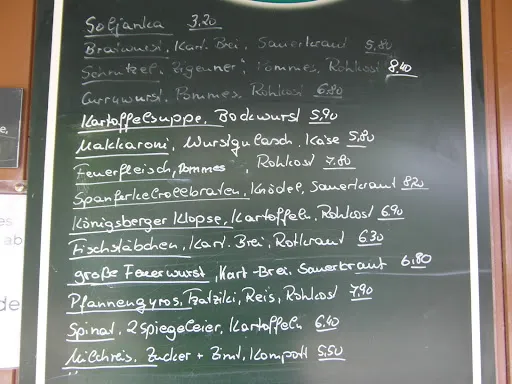 Soljanka 3,20
Bratwurst, Kart. Brei, Sauerkraut 5,80
Schnitzel "Zigeuner", Pommes, Rohkost 8,40
Currywurst, Pommes, Rohkost 6,80
Kartoffelsuppe, Bockwurst 5,90
Makkaroni, Wurstgulasch, Käse 5,80
Feuerfleisch, Pommes, Rohkost 7,80
Spanferkelrollbraten, Knödel, Sauerkraut 8,20
Königsberger Klopse, Kartoffeln, Rohkost 6,90
Fischstäbchen, Kart. Brei, Rotkraut 6,30
große Feuerwurst, Kart-Brei, Sauerkraut 6,80
Pfannengyros, Tzatziki, Reis, Rohkost 7,90
Spinat, 2 Spiegeleier, Kartoffeln 6,40
Milchreis, Zucker + Zimt, Kompott 5,50
es
ab
de